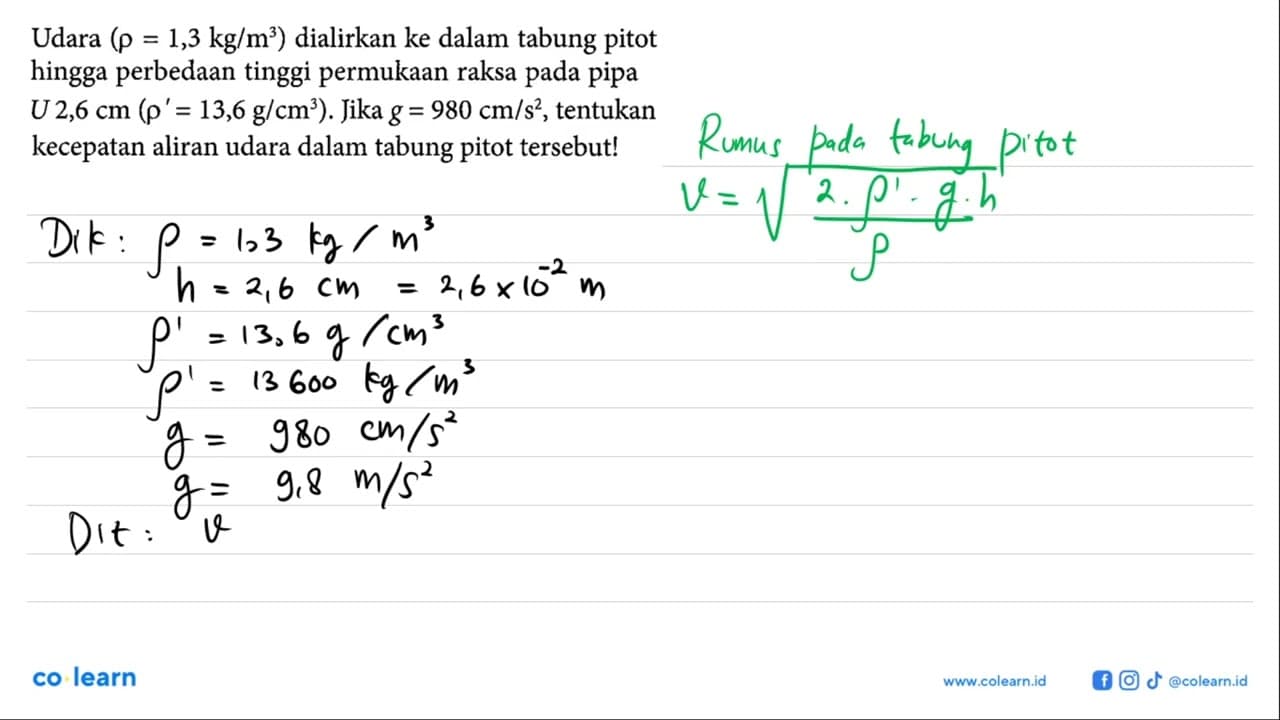 Udara (ρ = 1,3 kg/m³) dialirkan ke dalam tabung pitot
hingga perbedaan tinggi permukaan raksa pada pipa
U 2,6 cm (ρ′ = 13,6 g/cm³). Jika g = 980 cm/s², tentukan
kecepatan aliran udara dalam tabung pitot tersebut!
Rumus pada tabung pitot
v = √(2 . ρ' . g . h / ρ)
Dik : ρ = 1,3 kg / m³
h = 2,6 cm = 2,6 × 10⁻² m
ρ' = 13,6 g / cm³
ρ' = 13 600 kg / m³
g = 980 cm/s²
g = 9,8 m/s²
Dit : v
co learn
www.colearn.id
@colearn.id